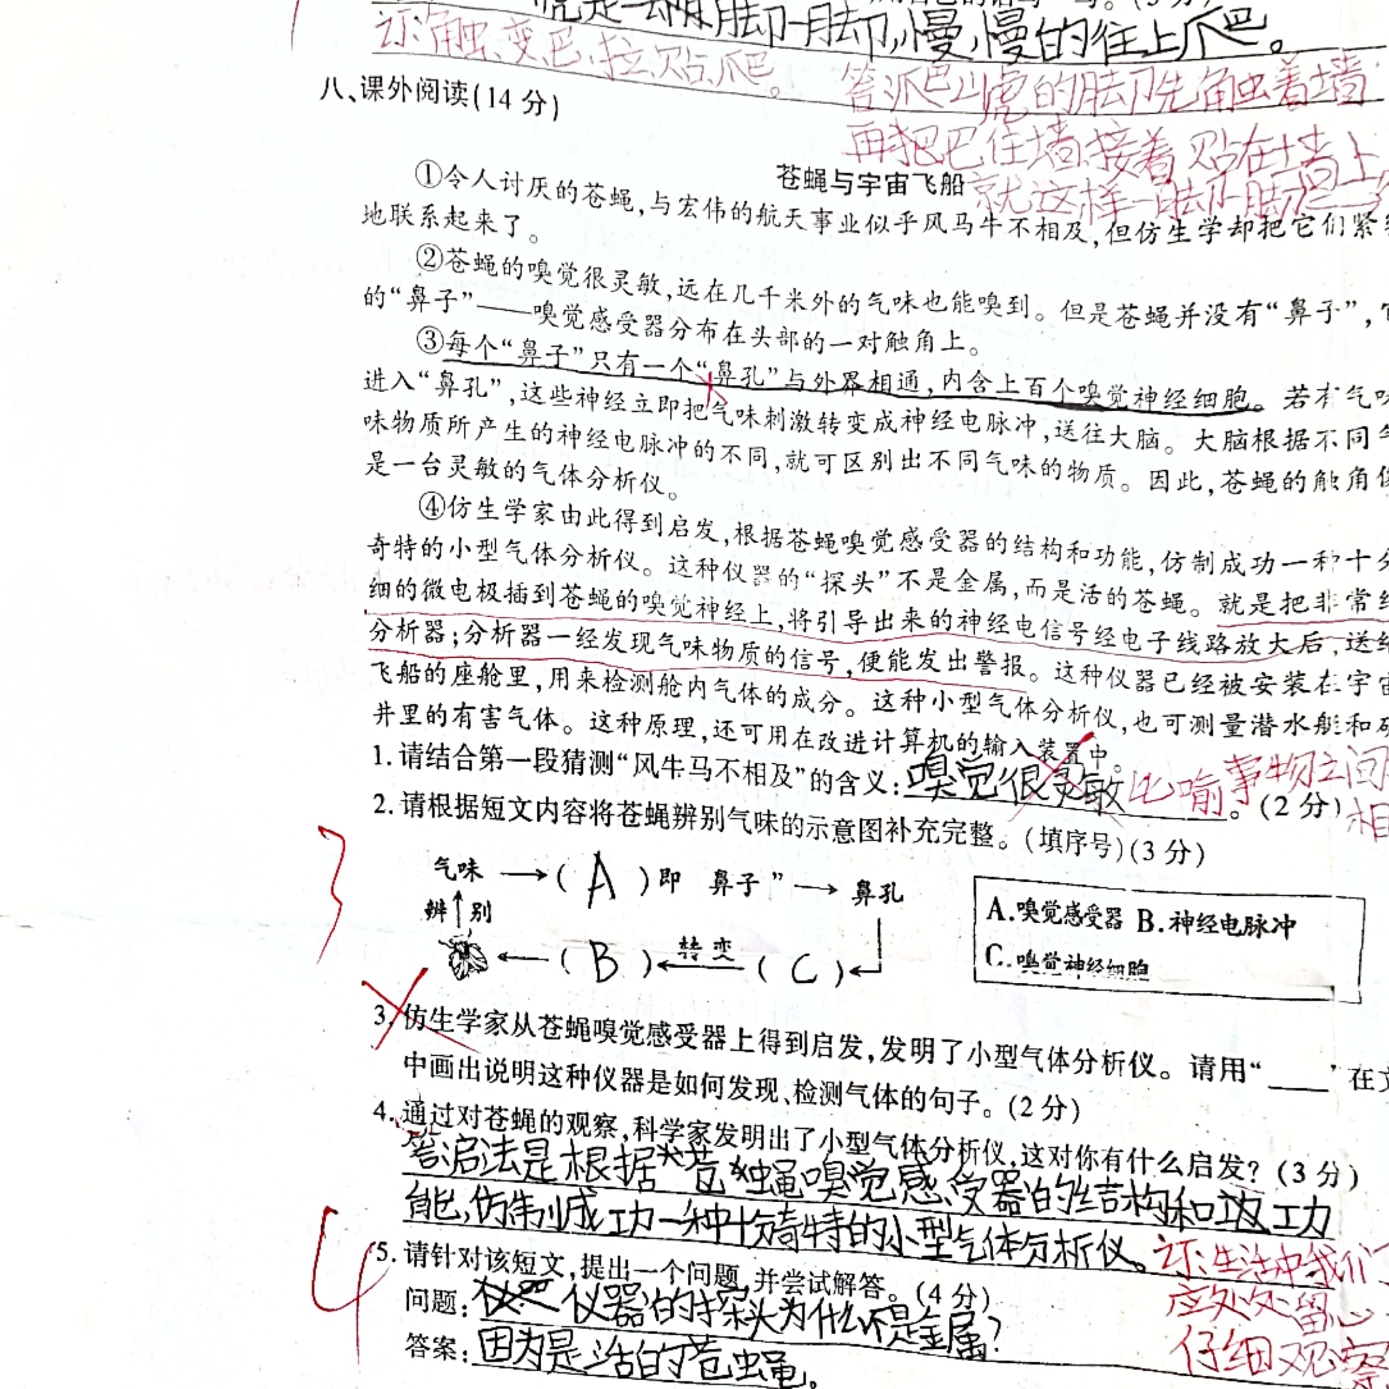 就是一脚一脚,慢慢的往上爬。
订:触、变、巴、拉、贴、爬。
八、课外阅读(14 分)
答:爬山虎的脚先触着墙
再把巴住墙,接着贴在墙上
苍蝇与宇宙飞船
就这样一脚一脚
①令人讨厌的苍蝇,与宏伟的航天事业似乎风马牛不相及,但仿生学却把它们紧
地联系起来了。
②苍蝇的嗅觉很灵敏,远在几千米外的气味也能嗅到。但是苍蝇并没有“鼻子”,
的“鼻子”——嗅觉感受器分布在头部的一对触角上。
③每个“鼻子”只有一个“鼻孔”与外界相通,内含上百个嗅觉神经细胞。若有气
进入“鼻孔”,这些神经立即把气味刺激转变成神经电脉冲,送往大脑。大脑根据不同
味物质所产生的神经电脉冲的不同,就可区别出不同气味的物质。因此,苍蝇的触角
是一台灵敏的气体分析仪。
④仿生学家由此得到启发,根据苍蝇嗅觉感受器的结构和功能,仿制成功一种十
奇特的小型气体分析仪。这种仪器的“探头”不是金属,而是活的苍蝇。就是把非常
细的微电极插到苍蝇的嗅觉神经上,将引导出来的神经电信号经电子线路放大后,送
分析器;分析器一经发现气味物质的信号,便能发出警报。这种仪器已经被安装在宇
飞船的座舱里,用来检测舱内气体的成分。这种小型气体分析仪,也可测量潜水艇和
井里的有害气体。这种原理,还可用在改进计算机的输入装置中。
1.请结合第一段猜测“风牛马不相及”的含义:嗅觉很灵敏。(2 分)
比喻事物之间
相
2.请根据短文内容将苍蝇辨别气味的示意图补充完整。(填序号)(3 分)
气味 →( A )即 鼻子”→ 鼻孔
辨 别
←( B )← 转变 ( C )
A.嗅觉感受器 B.神经电脉冲
C.嗅觉神经细胞
3
3.仿生学家从苍蝇嗅觉感受器上得到启发,发明了小型气体分析仪。请用“___”在
中画出说明这种仪器是如何发现、检测气体的句子。(2 分)
4.通过对苍蝇的观察,科学家发明出了小型气体分析仪,这对你有什么启发?(3 分)
答:启法是根据苍蝇嗅觉感受器的结构和功
能,仿制成功一种十分奇特的小型气体分析仪。
订:生活中我们
应处处留心
仔细观察
4
5.请针对该短文,提出一个问题,并尝试解答。(4 分)
问题:仪器的探头为什么不是金属?
答案:因为是活的苍蝇。